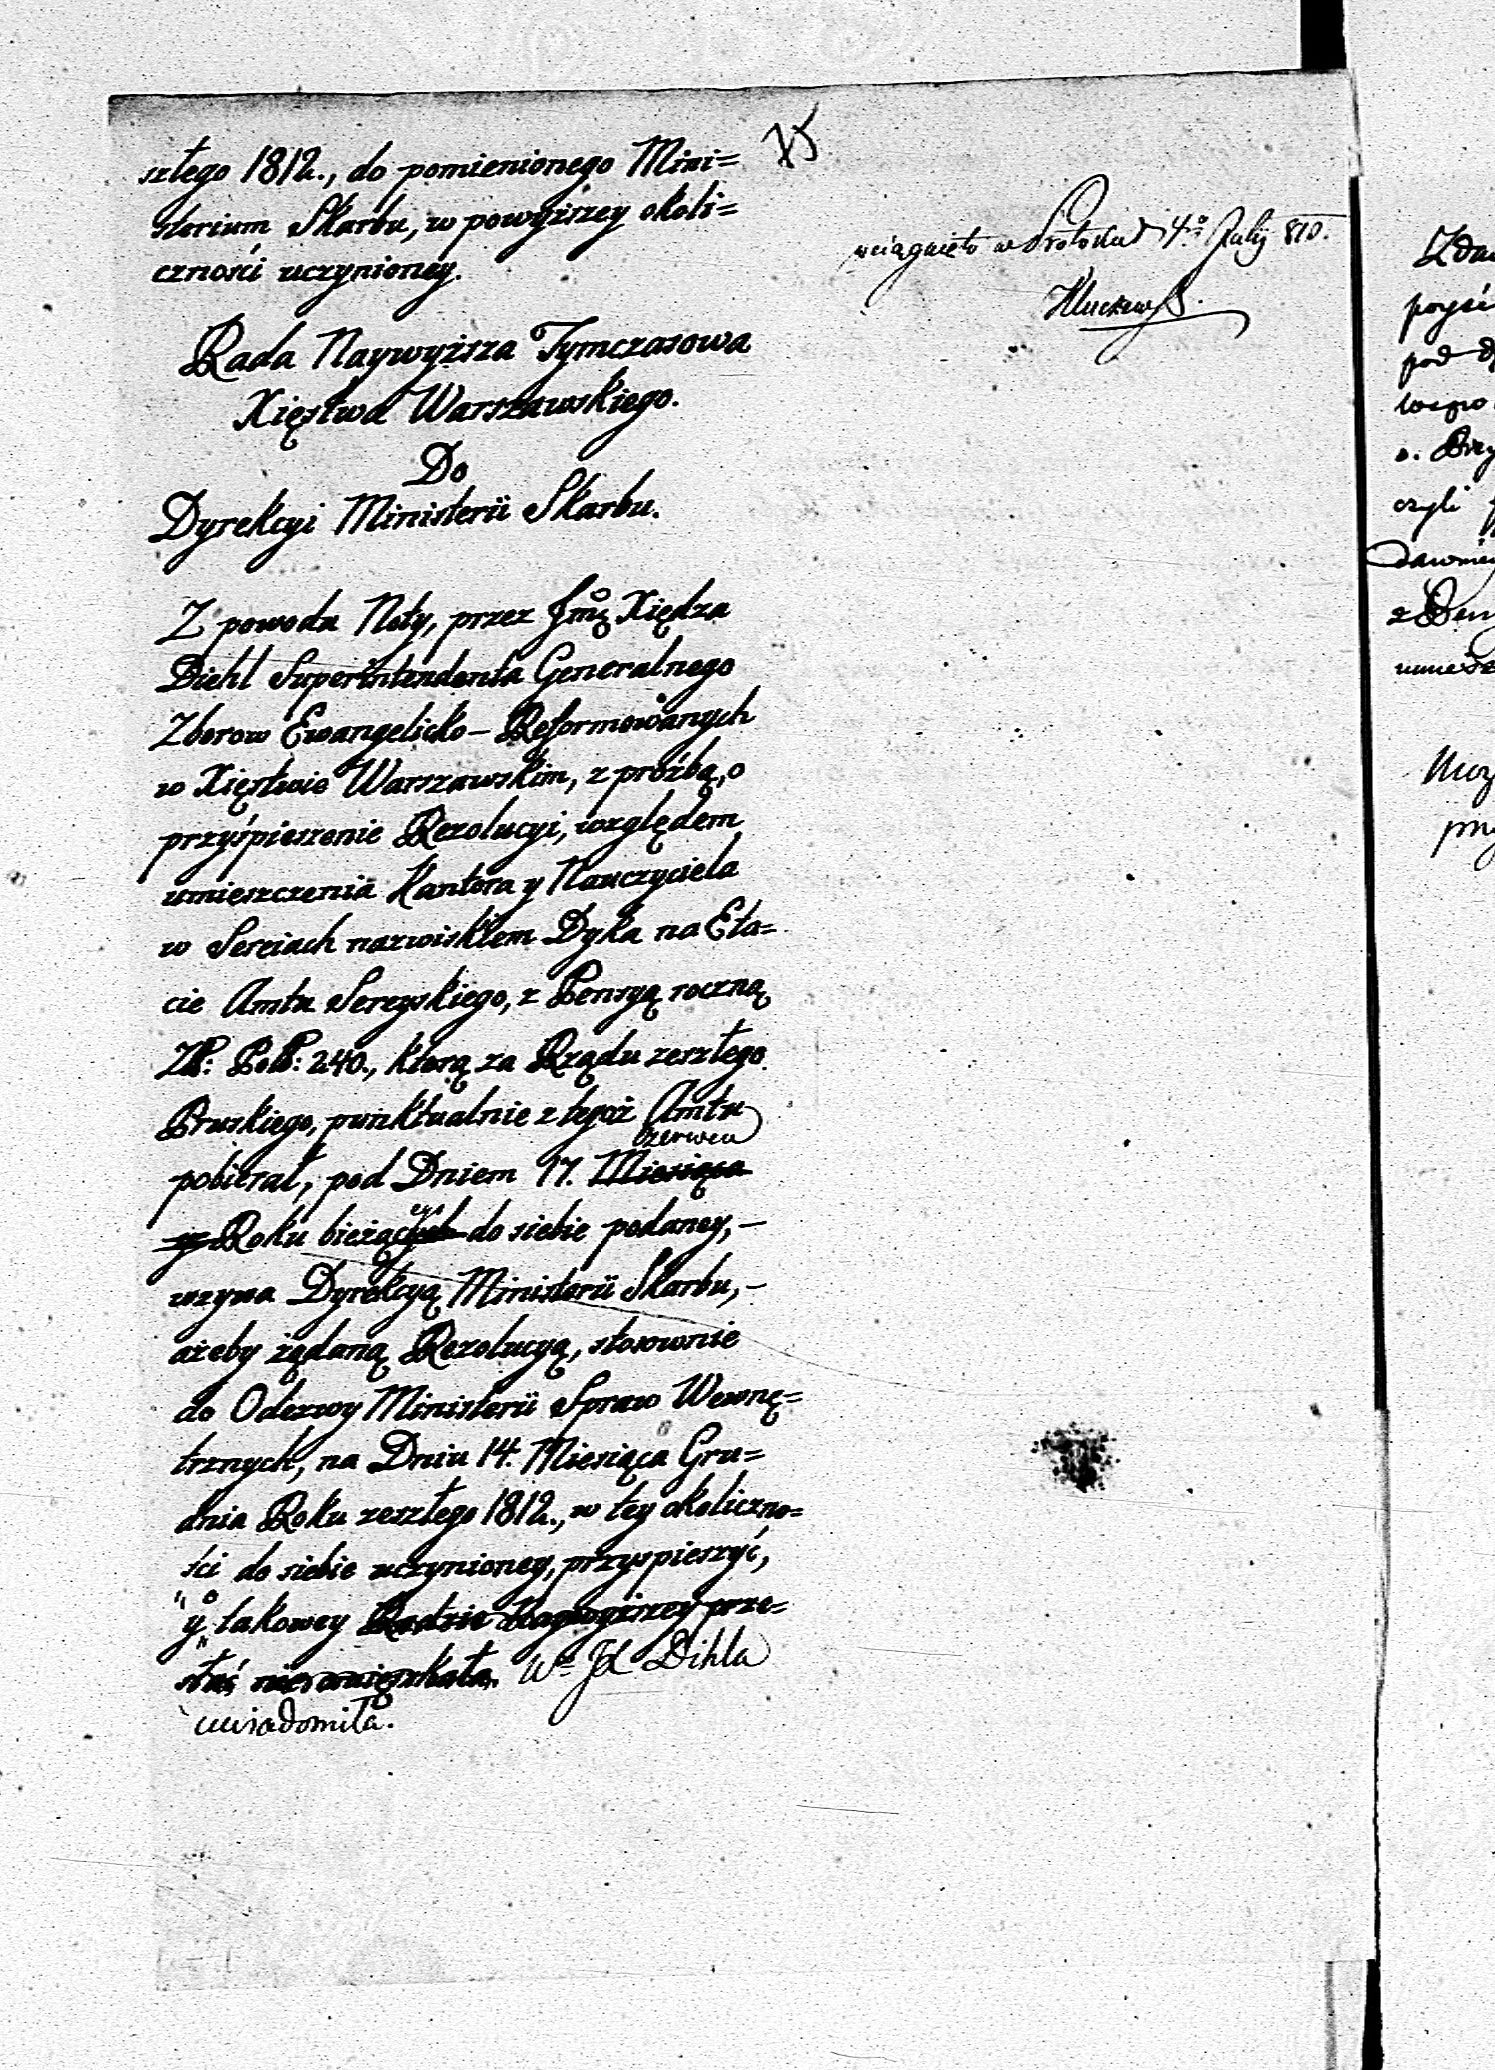 75
szłego 1812., do pomienionego Mini=
sterium Skarbu, w powyższey okoli=
czności uczynioney.
wciągnięto w Protokuł 4.º Julij 810.
Rada Naywyższa Tymczasowa
Xięstwa Warszawskiego.
Do
Dyrekcyi Ministerii Skarbu.
Z powodu Noty, przez Jmć Xiędza
Diehl Superintendenta Generalnego
Zborow Ewangelicko – Reformowanych
w Xięstwie Warszawskim, z proźbą, o
przyśpieszenie Rezolucyi, względem
umieszczenia Kantora y Nauczyciela
w Sereiach nazwiskiem Dyka na Eta=
cie Amtu Sereyskiego, z Pensyą roczną
Zł: Pol: 240., ktorą za Rządu zeszłego
Pruskiego, punktualnie z tegoż Amtu
czerwca
pobierał, pod Dniem 17. Miesiąca
y Roku bieżących ego do siebie podaney, –
wzywa Dyrekcyą Ministerii Skarbu, –
ażeby żądaną Rezolucyą, stosownie
do Odezwy Ministerii Spraw Wewnę=
trznych, na Dniu 14. Miesiąca Gru=
dnia Roku zeszłego 1812., w tey okoliczno=
ści do siebie uczynioney, przyspieszyć,
y o takowey Radzie Naywyższey prze=
słać nieomieszkała. Wº JX Dihla
uwiadomiła.
czyli